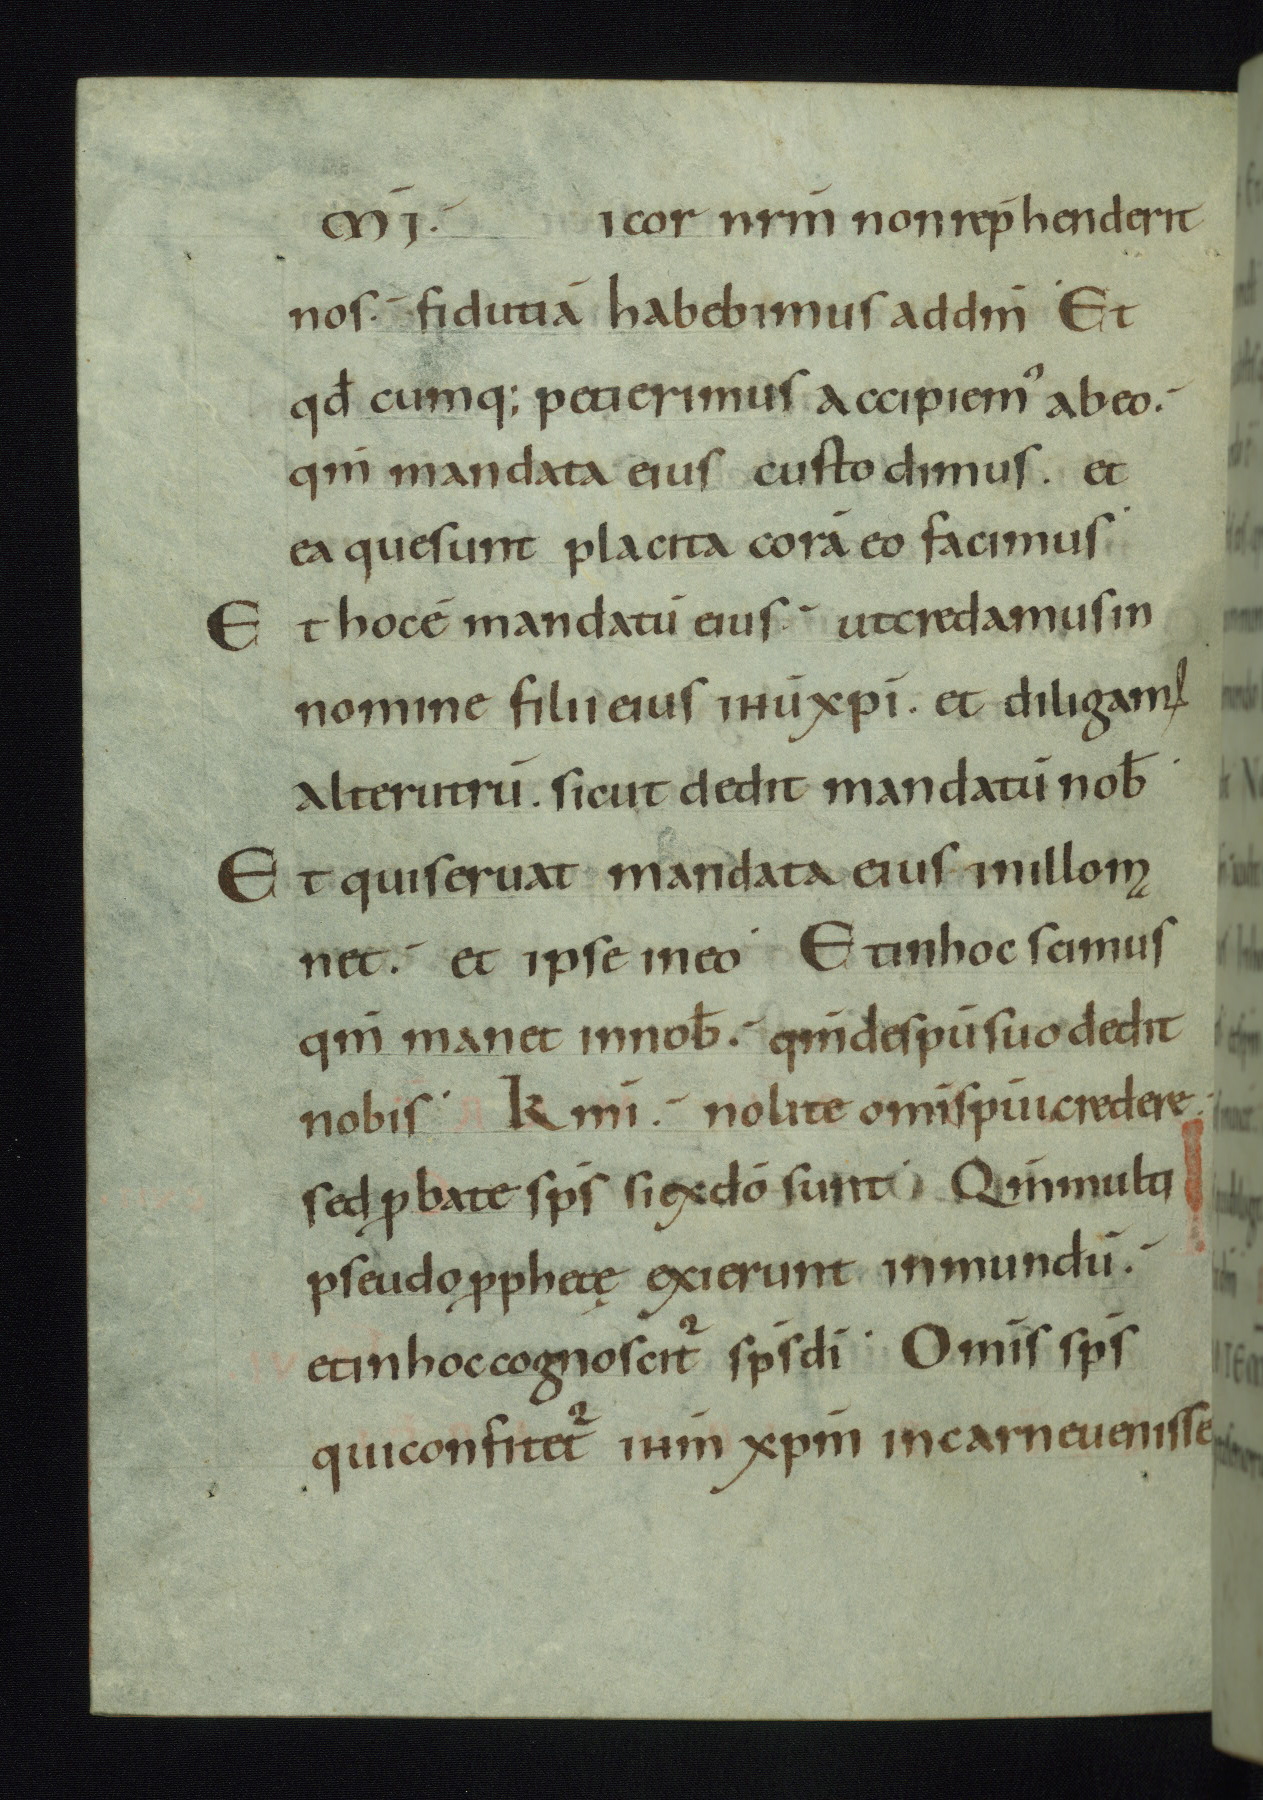 mī. i cor nrm̄ non rep̄henderit
nos. fidutiā habebimus ad dm̄ Et
qd̄ cumq; petierimus accipiem᾽ ab eo.
qm̄ mandata eius custodimus. et
ea que sunt placita corā eo facimus
Et hoc ē mandatū eius. ut credamus in
nomine filii eius ihū xpī. et diligam᾽
alterutrū. sicut dedit mandatū nob̄
Et qui seruat mandata eius in illo mę
net. et ipse in eo Et in hoc scimus
qm̄ manet in nob̄. qm̄ de spū suo dedit
nobis Kmī. nolite om̄i spiui credere.
sed ꝓbate sps̄ si ex dō sunt Qm̄ multi
pseudo ꝓphetę exierunt in mundū.
et in hoc cognoscit᷑ sps̄ dī Om̄is sps̄
qui confitet᷑ ihm̄ xpm̄ in carne uenisse